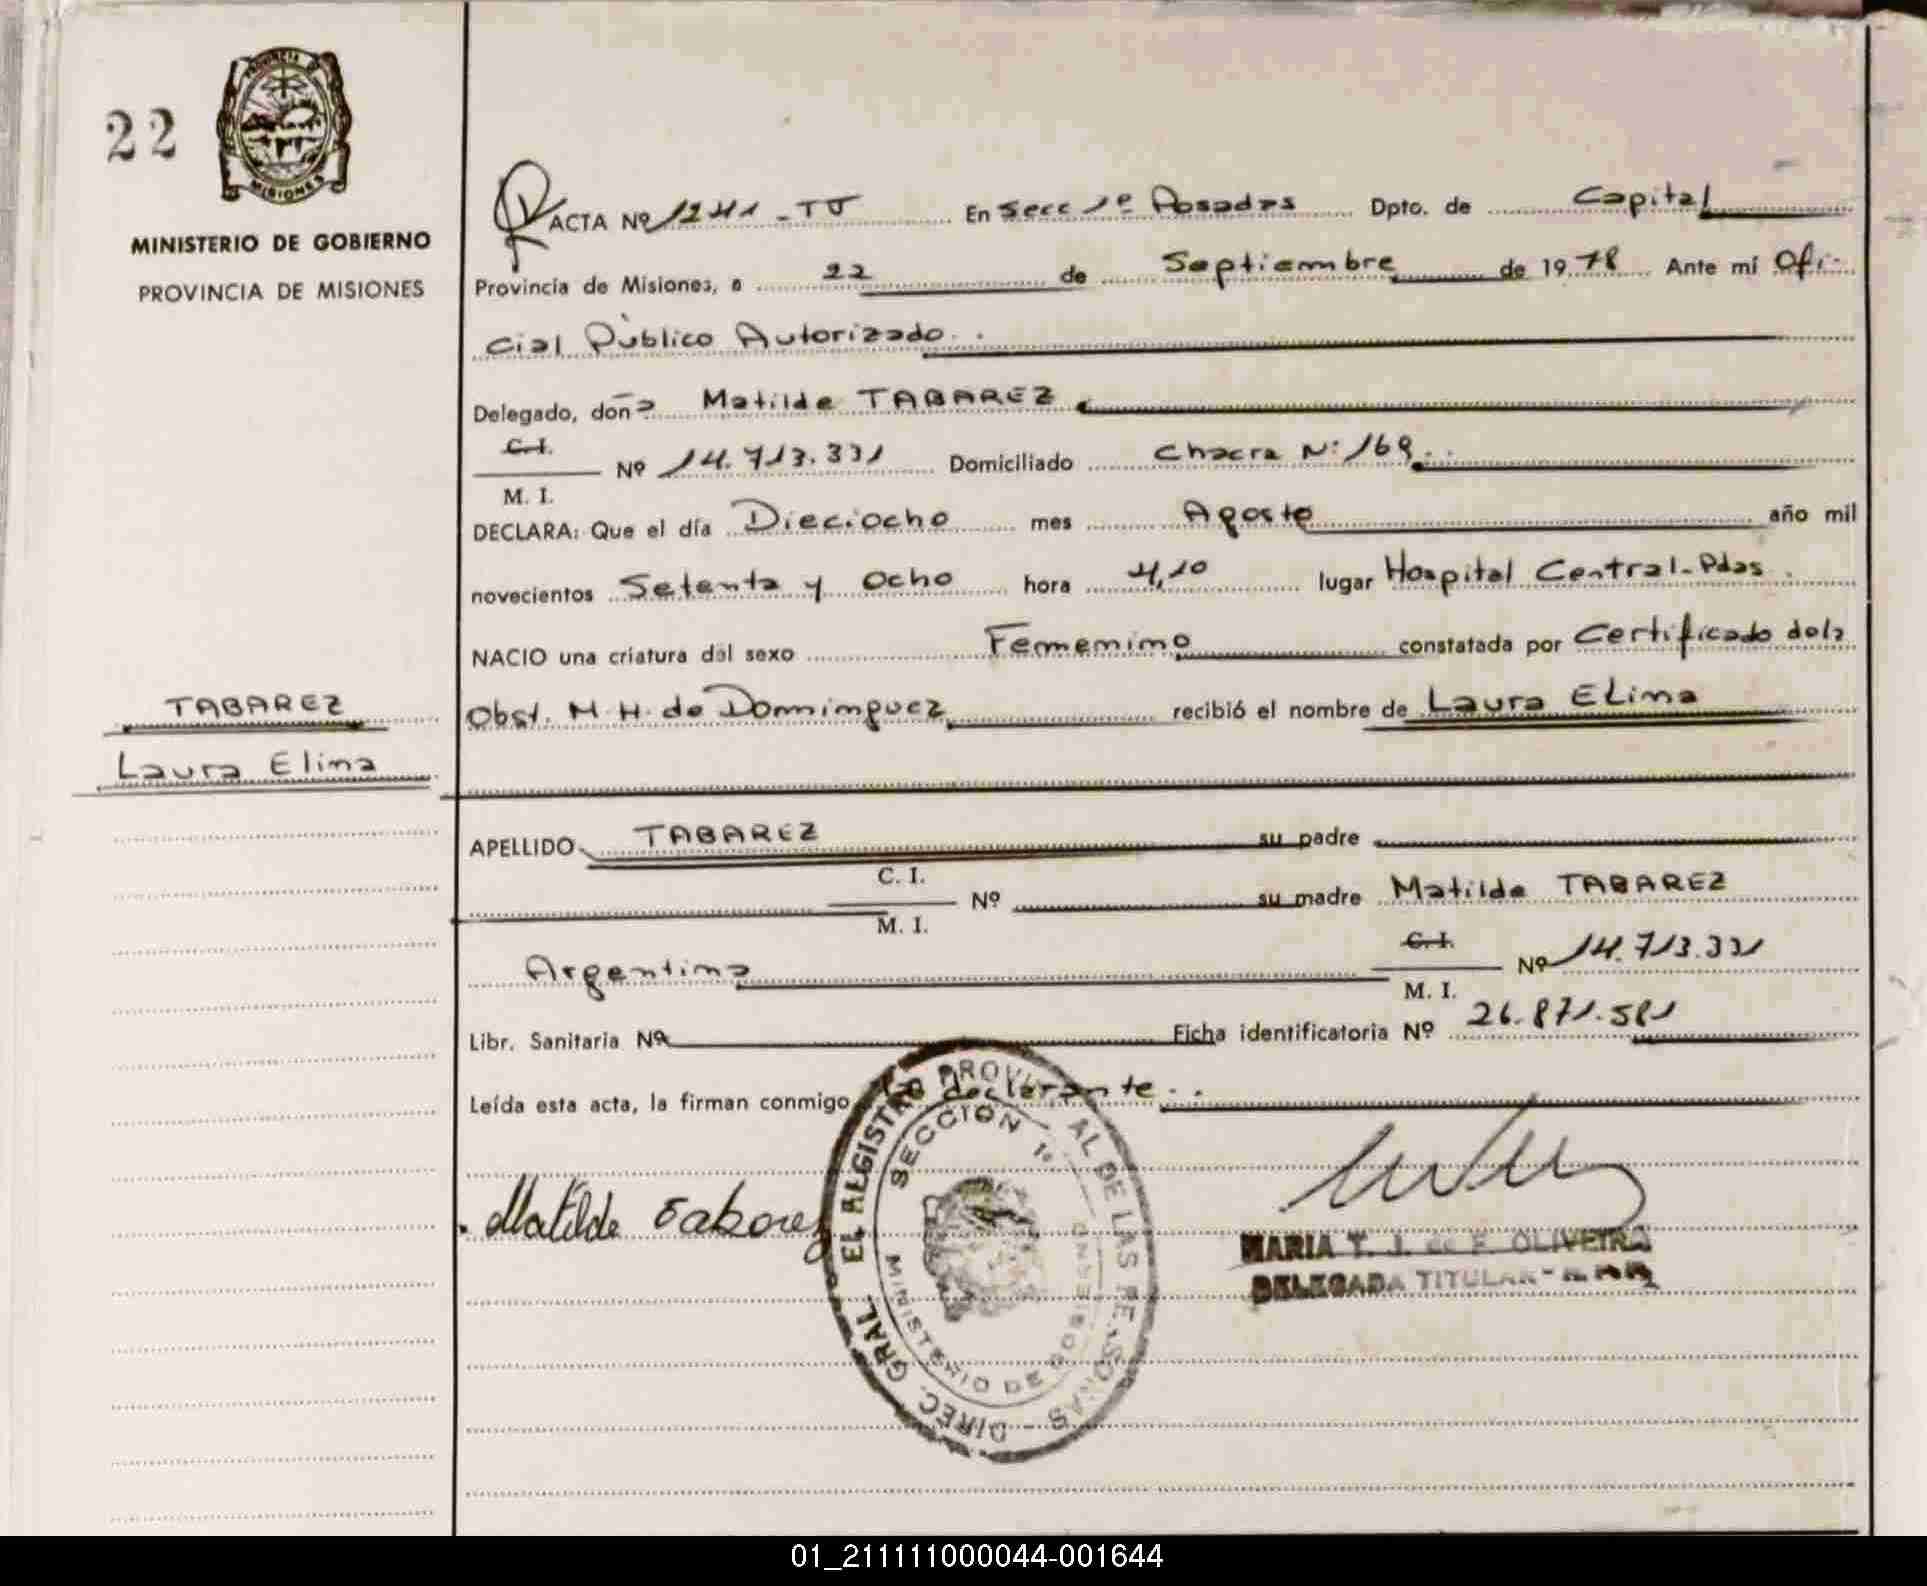 22
PROVINCIA DE
MISIONES
MINISTERIO DE GOBIERNO
PROVINCIA DE MISIONES
ACTA Nº 1241 - TJ En Secc 1º Posadas Dpto. de Capital
Provincia de Misiones, a 22 de Septiembre de 1978 Ante mí Ofi-
cial Público Autorizado.
Delegado, doña Matilde TABAREZ
C.I.
M. I. Nº 14.713.331 Domiciliado Chacra Nº 169
DECLARA: Que el día Dieciocho mes Agosto año mil
novecientos Setenta y Ocho hora 4,10 lugar Hospital Central-Pdas.
NACIO una criatura del sexo Femenino constatada por Certificado dela
TABAREZ
Laura Elina
Obst. M. H. de Dominguez recibió el nombre de Laura ELina
APELLIDO TABAREZ su padre
C. I.
M. I. Nº su madre Matilde TABAREZ
Argentina C.I.
M. I. Nº 14.713.331
Libr. Sanitaria Nº Ficha identificatoria Nº 26.871.581
Leída esta acta, la firman conmigo la declarante.
Matilde Tabarez
DIREC. GRAL. EL REGISTRO PROVINCIAL DE LAS PERSONAS
SECCION 1º
MINISTERIO DE GOBIERNO
MARIA T. J. de F. OLIVEIRA
DELEGADA TITULAR
01_211111000044-001644